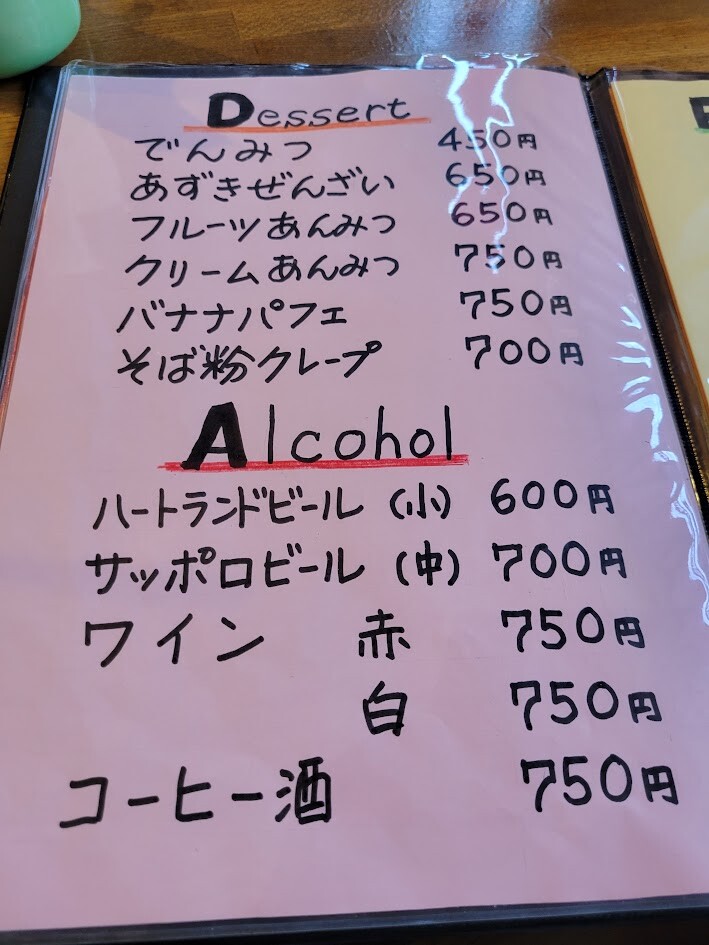 Dessert
でんみつ 450円
あずきぜんざい 650円
フルーツあんみつ 650円
クリームあんみつ 750円
バナナパフェ 750円
そば粉クレープ 700円
Alcohol
ハートランドビール (小) 600円
サッポロビール (中) 700円
ワイン 赤 750円
白 750円
コーヒー酒 750円